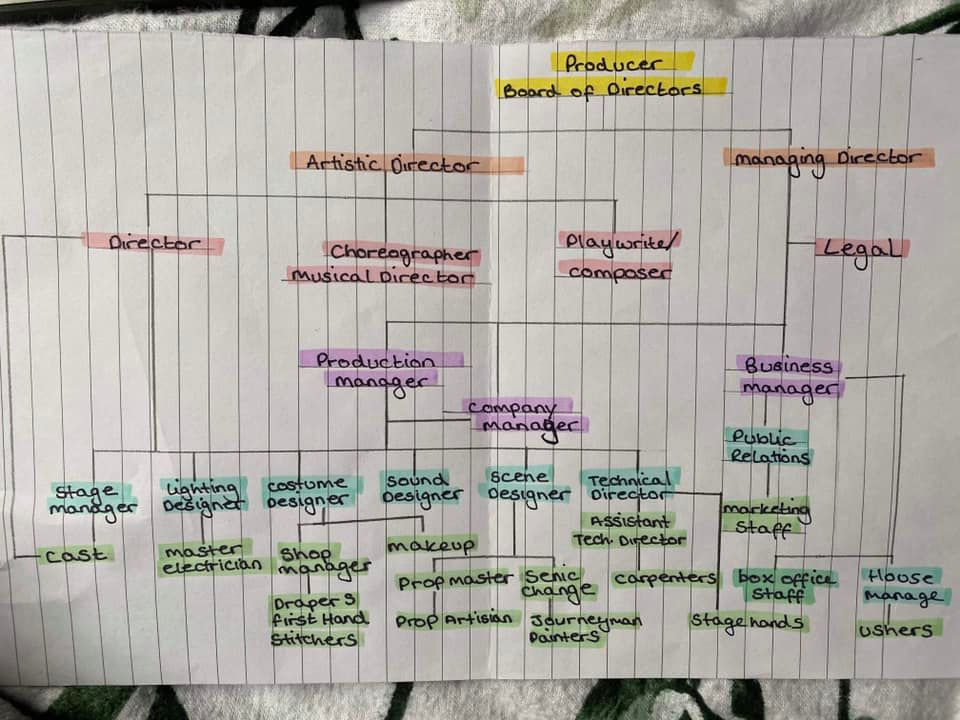 Producer
Board of Directors
Artistic Director
managing Director
Director
Choreographer
Musical Director
Playwrite/
composer
Legal
Production
manager
company
manager
Business
manager
Public
Relations
Stage
manager
Lighting
Designer
costume
Designer
Sound
Designer
Scene
Designer
Technical
Director
marketing
Staff
cast
master
electrician
Shop
manager
makeup
Assistant
Tech. Director
Prop master
Senic
change
carpenters
box office
Staff
House
manage
Drapers
first Hand
Stitchers
Prop Artisian
Journeyman
Painters
Stagehands
ushers